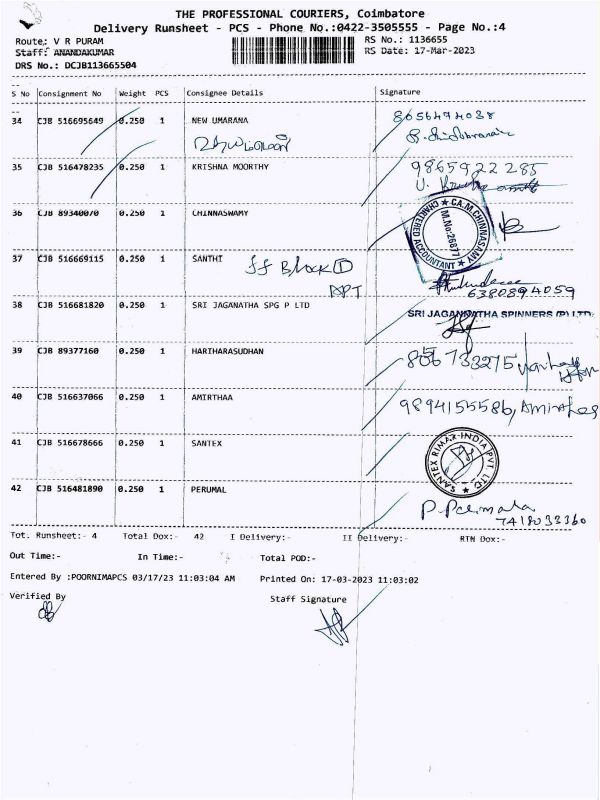 THE PROFESSIONAL COURIERS, Coimbatore
Delivery Runsheet - PCS - Phone No.:0422-3505555 - Page No.:4
Route: V R PURAM
RS No.: 1136655
Staff: ANANDAKUMAR
RS Date: 17-Mar-2023
DRS No.: DCJB113665504
S No Consignment No Weight PCS Consignee Details Signature
34 CJB 516695649 0.250 1 NEW UMARANA
8056494038
35 CJB 516478235 0.250 1 KRISHNA MOORTHY 9865922285
36 CJB 89340070 0.250 1 CHINNASWAMY
CA.M.CHINNASAMY
M.No:26877
CHARTERED ACCOUNTANT
37 CJB 516669115 0.250 1 SANTHI
FF Block D
APT
6380894059
38 CJB 516681820 0.250 1 SRI JAGANATHA SPG P LTD SRI JAGANNATHA SPINNERS (P) LTD
39 CJB 89377160 0.250 1 HARIHARASUDHAN
40 CJB 516637066 0.250 1 AMIRTHAA 9894155586,
41 CJB 516678666 0.250 1 SANTEX
SANTEX RIMAX-INDIA PVT. LTD
42 CJB 516481890 0.250 1 PERUMAL
7418033360
Tot. Runsheet:- 4 Total Dox:- 42 I Delivery:- II Delivery:- RTN Dox:-
Out Time:- In Time:- Total POD:-
Entered By :POORNIMAPCS 03/17/23 11:03:04 AM Printed On: 17-03-2023 11:03:02
Verified By
Staff Signature